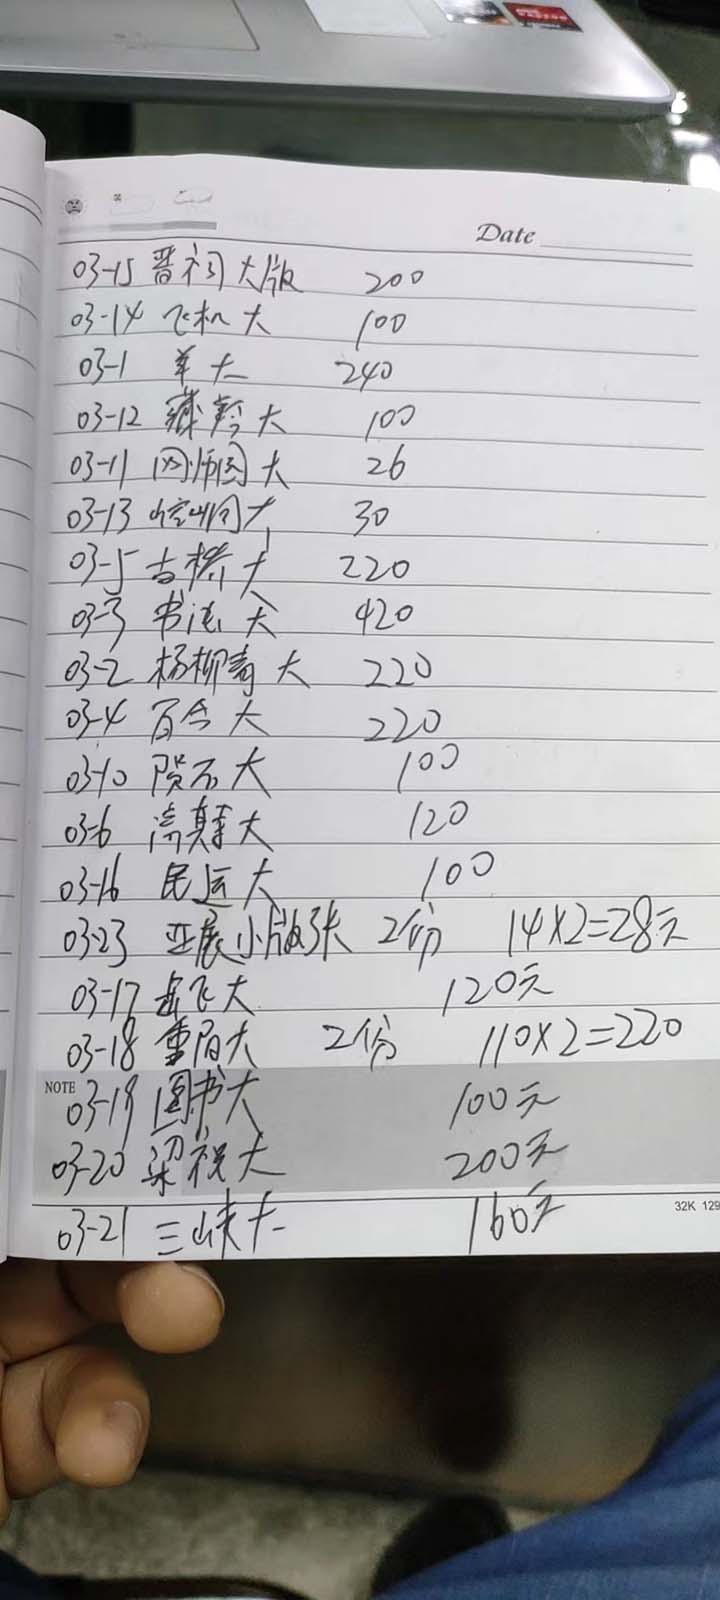 Date
03-15 晋祠大版 200
03-14 飞机大 100
03-1 羊大 240
03-12 藏羚大 100
03-11 网师园大 26
03-13 崆峒大 30
03-5 古桥大 220
03-3 书法大 420
03-2 杨柳青大 220
03-4 百合大 220
03-10 陨石大 100
03-6 清真寺大 120
03-16 民运大 100
03-23 亚展小版张 2份 14X2=28元
03-17 岳飞大 120元
03-18 重阳大 2份 110X2=220
NOTE
03-19 图书大 100元
03-20 梁祝大 200元
32K 129
03-21 三峡大 160元